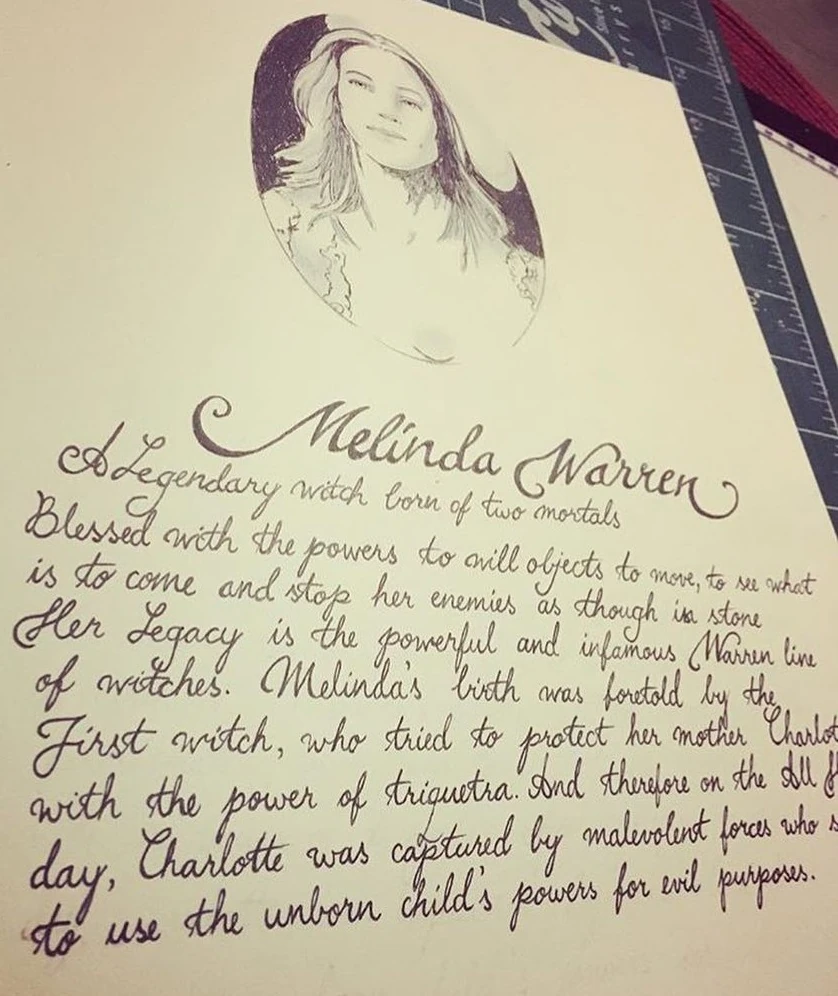 Melinda Warren
A Legendary witch born of two mortals
Blessed with the powers to will objects to move, to see what
is to come and stop her enemies as though in stone
Her Legacy is the powerful and infamous Warren line
of witches. Melinda's birth was foretold by the
First witch, who tried to protect her mother Charlot
with the power of triquetra. And therefore on the All H
day, Charlotte was captured by malevolent forces who s
to use the unborn child's powers for evil purposes.